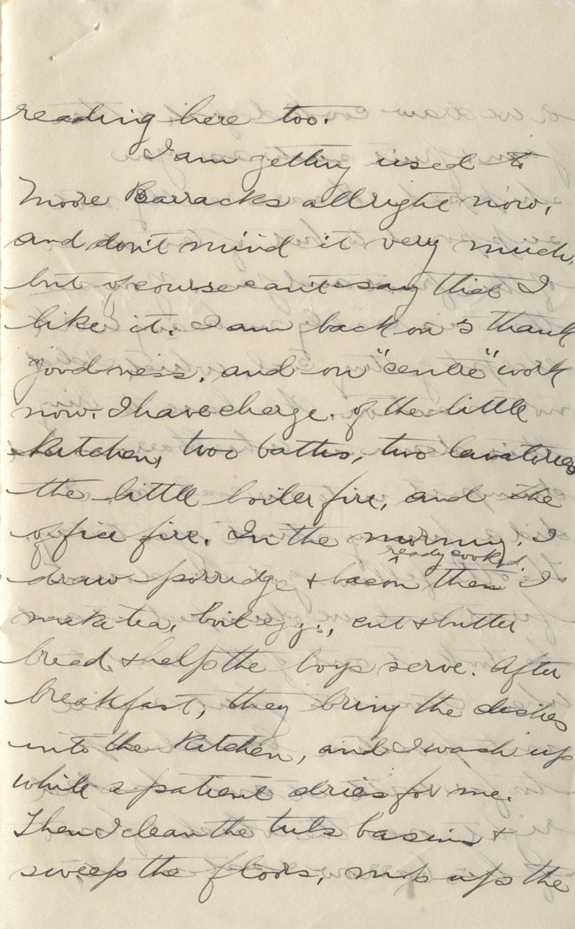 reading here too.
I am getting used to
Moore Barracks allright now,
and don't mind it very much,
but of course can't say that I
like it. I am back on 3 thank
goodness, and on "centre" work
now. I have charge of the little
kitchen, two baths, two lavatories
the little boiler fire, and the
office fire. In the morning I
ready cooked.
draw porridge + bacon then I
make tea, boil eggs, cut + butter
bread + help the boys serve. After
breakfast, they bring the dishes
into the kitchen, and I wash up
while a patient dries for me.
Then I clean the tubs basins +
sweep the floors, mop up the